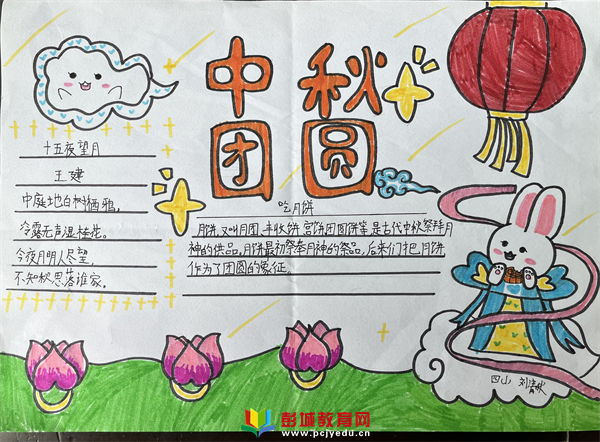 中秋
团圆
十五夜望月
王建
中庭地白树栖鸦，
冷露无声湿桂花。
今夜月明人尽望，
不知秋思落谁家。
吃月饼
月饼，又叫月团、丰收饼、宫饼团圆饼等是古代中秋祭拜月
神的供品。月饼最初祭奉月神的祭品，后来们把月饼
作为了团圆的象征。
四山 刘
彭城教育网
www.pcjyedu.cn